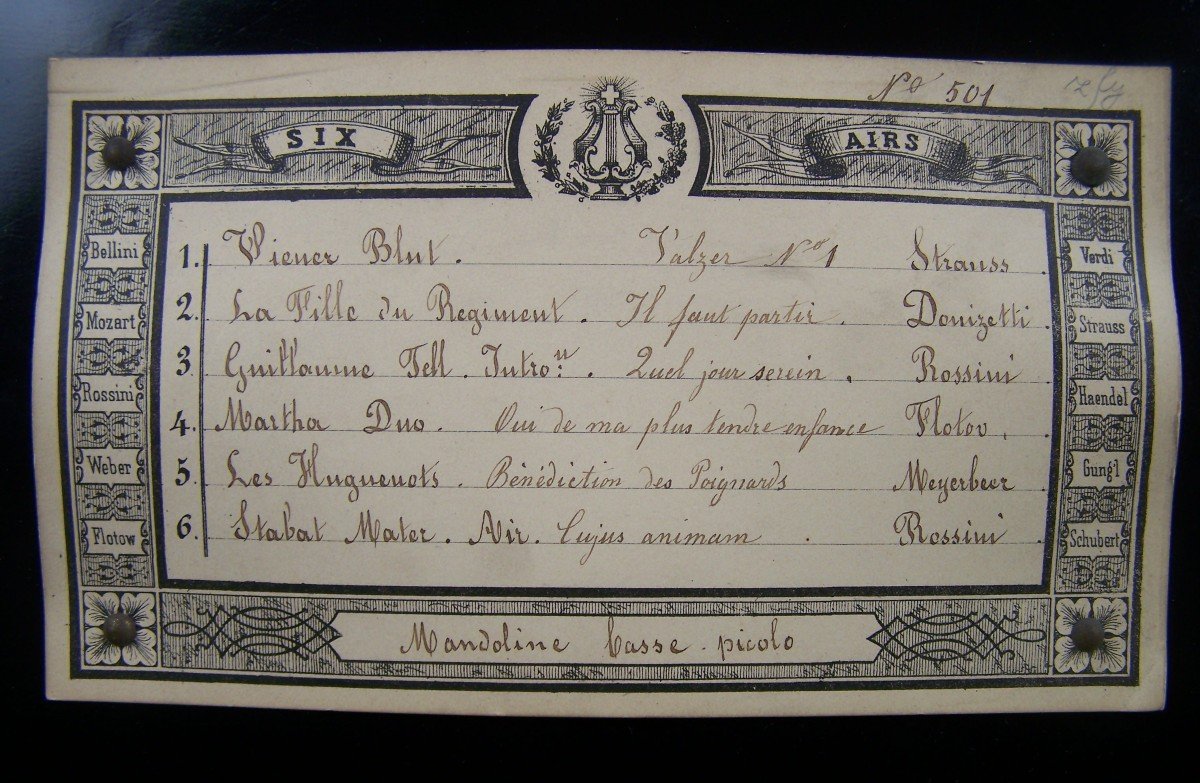 Nº 501
SIX AIRS
1. Wiener Blut. Valzer Nº 1 Strauss.
2. La Fille du Regiment. Il faut partir. Donizetti.
3 Guillaume Tell. Introⁿ. Quel jour serein. Rossini
4. Martha Duo. Oui de ma plus tendre enfance Flotov.
5 Les Huguenots. Bénédiction des Poignards Meyerbeer.
6. Stabat Mater. Air. Cujus animam. Rossini.
Bellini
Mozart
Rossini
Weber
Flotow
Verdi
Strauss
Haendel
Gung'l
Schubert
Mandoline basse picolo